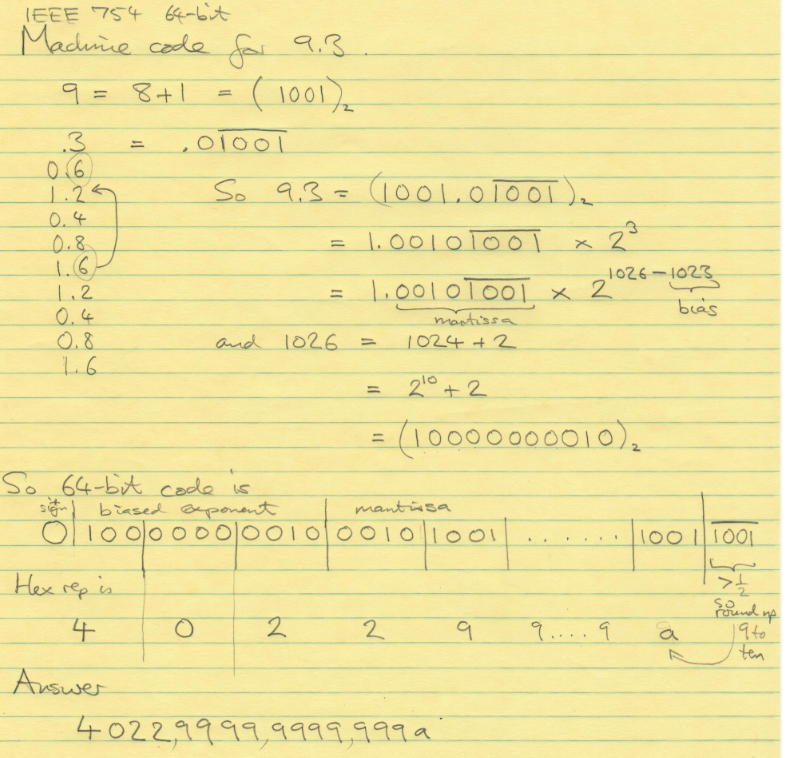 IEEE 754 64-bit
Machine code for 9.3.
9 = 8+1 = (1001)₂
.3 = .01001̅
0.6
1.2
0.4
0.8
1.6
1.2
0.4
0.8
1.6
So 9.3 = (1001.0̅1̅0̅0̅1̅)₂
= 1.00101001 × 2³
= 1.00101001 × 2^1026-1023
mantissa
bias
and 1026 = 1024 + 2
= 2¹⁰ + 2
= (10000000010)₂
So 64-bit code is
sign bit biased exponent mantissa
0 100 0000 0010 0010 1001 ....... 1001 1001
> 1/2
so round up
9 to
ten
Hex rep is
4 0 2 2 9 9....9 a
Answer
4022,9999,9999,999a